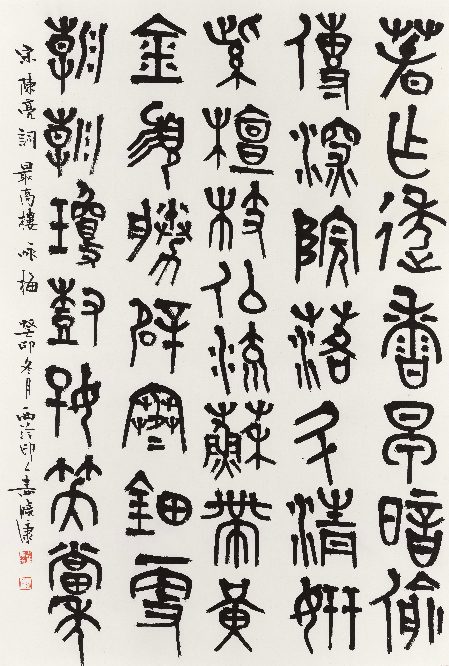 春乍透香早暗偷
傳深院落斗清妍
紫檀枝似流蘇帶黃
金須勝辟寒鈿更
朝朝瓊樹好笑當年
宋陳亮詞最高樓咏梅 癸卯冬月西泠印人